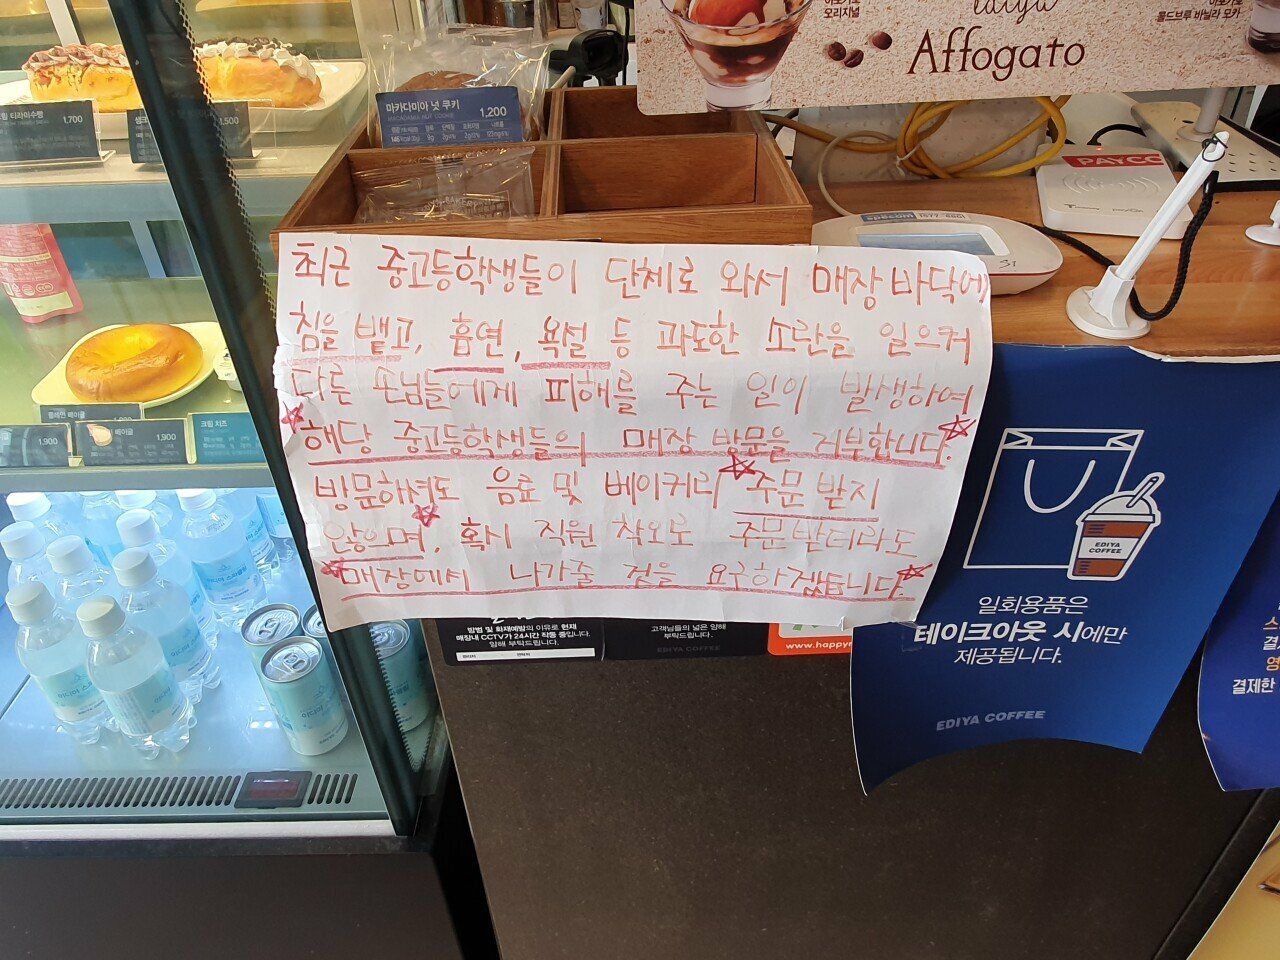 Affogato
오리지널
콜드브루 바닐라 모카
마카다미아 넛 쿠키
MACADAMIA NUT COOKIE
1,200
티라미수빵
1,700
1,500
PAYCO
최근 중고등학생들이 단체로 와서 매장 바닥에
침을 뱉고, 흡연, 욕설 등 과도한 소란을 일으켜
다른 손님들에게 피해를 주는 일이 발생하여
해당 중고등학생들의 매장 방문을 거부합니다.
방문하셔도 음료 및 베이커리 주문 받지
않으며, 혹시 직원 착오로 주문받더라도
매장에서 나가줄 것을 요구하겠습니다.
플레인 베이글
1,900
베이글
1,900
크림 치즈
방범 및 화재예방의 이유로 현재
매장내 CCTV가 24시간 작동 중입니다.
양해 부탁드립니다.
고객님들의 넓은 양해
부탁드립니다.
EDIYA COFFEE
www.happy
EDIYA
COFFEE
일회용품은
테이크아웃 시에만
제공됩니다.
EDIYA COFFEE
결제한